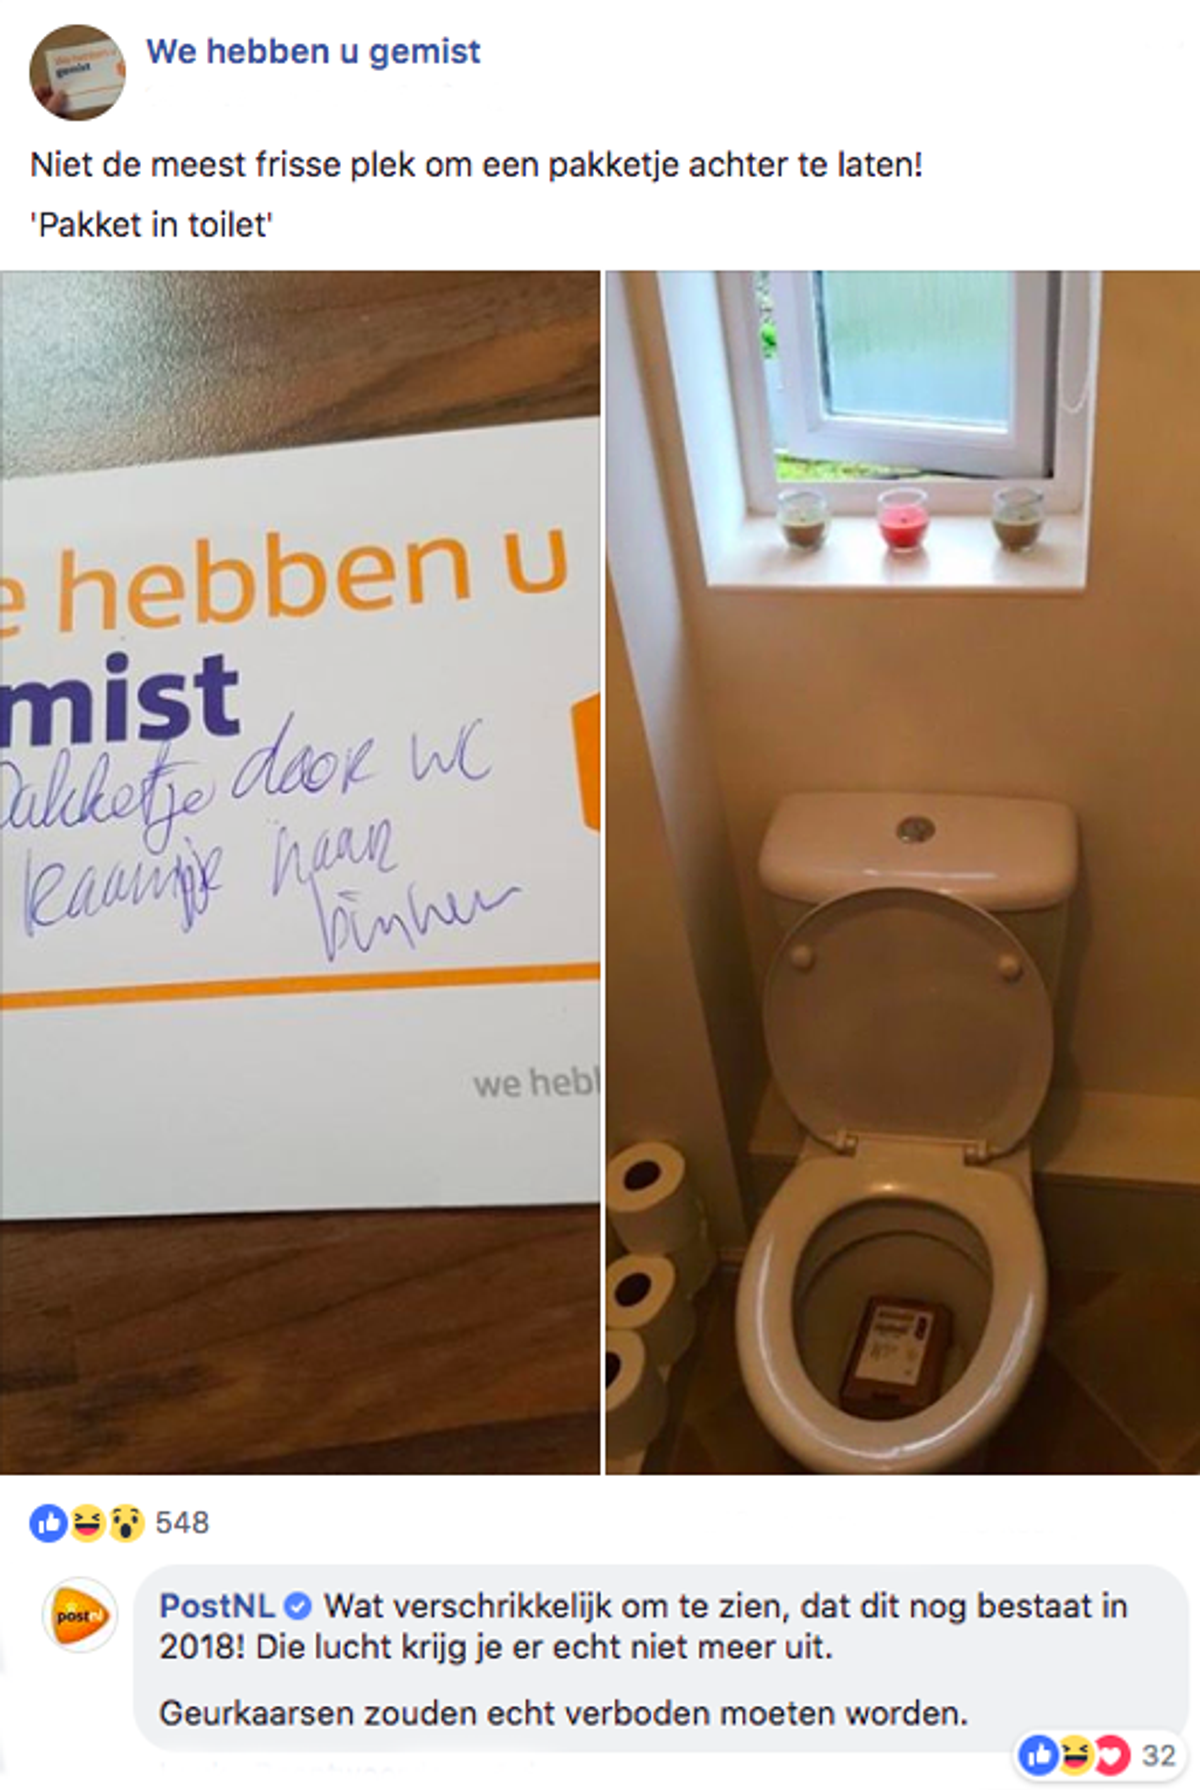 We hebben u gemist
Niet de meest frisse plek om een pakketje achter te laten!
'Pakket in toilet'
e hebben u
mist
Pakketje door wc
raampje naar
binnen
we hebb
548
postnl
PostNL Wat verschrikkelijk om te zien, dat dit nog bestaat in
2018! Die lucht krijg je er echt niet meer uit.
Geurkaarsen zouden echt verboden moeten worden.
32